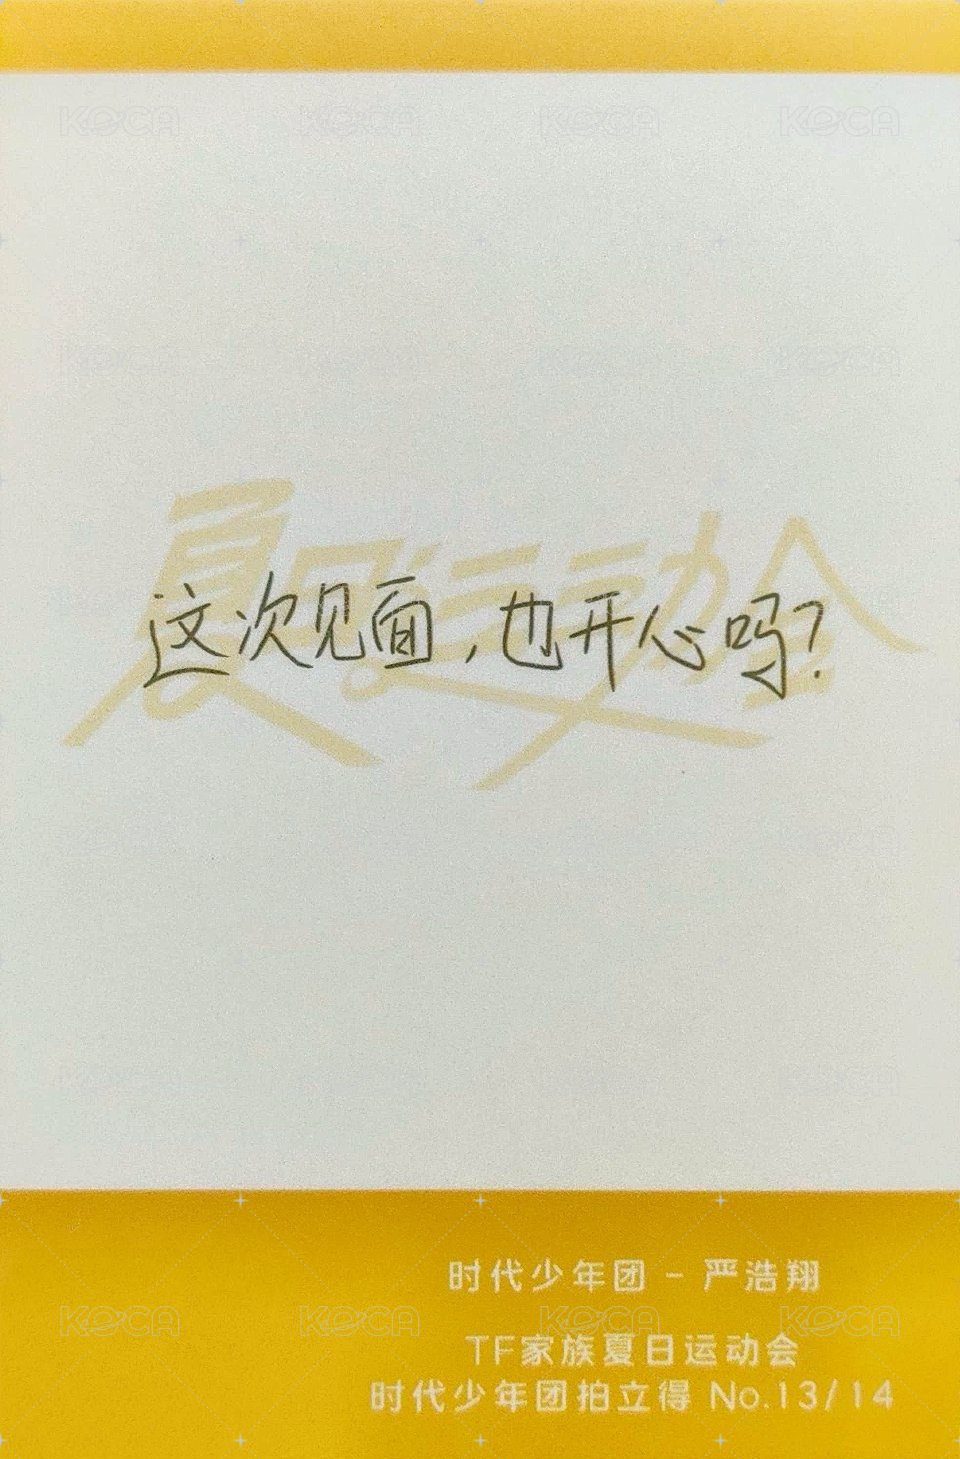 夏日运动会
这次见面,也开心吗?
时代少年团 - 严浩翔
TF家族夏日运动会
时代少年团拍立得 No.13/14
KOCA KOCA KOCA KOCA
KOCA KOCA KOCA KOCA
KOCA KOCA KOCA KOCA